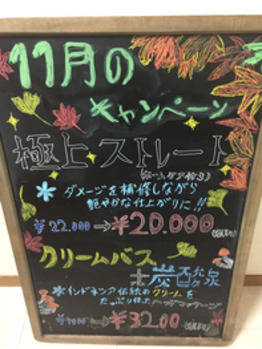 11月の
キャンペーン
極上ストレート
(ホームケア付き)
* ダメージを補修しながら
艶やかな仕上がりに!!
¥22.000→¥20.000
クリームバス
+炭酸泉
* インドネシア伝統のクリームを
たっぷり使ったヘッドマッサージ
→¥3200